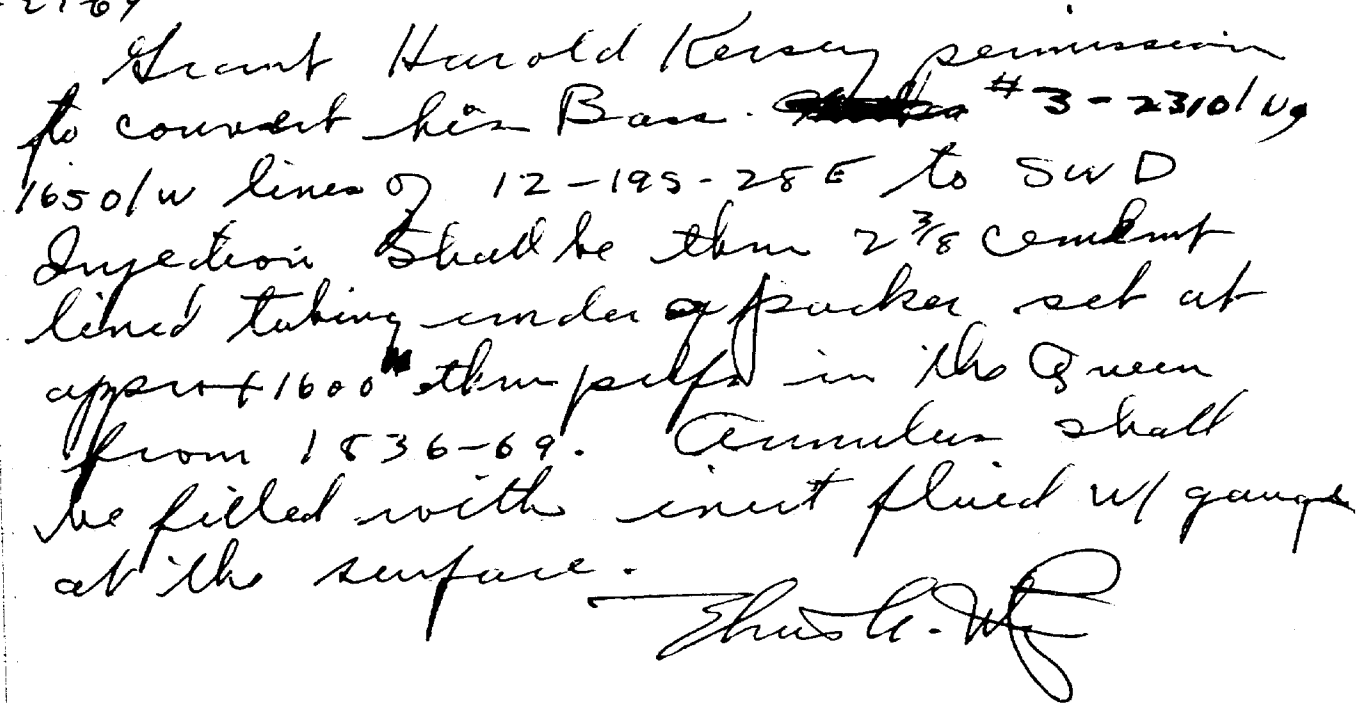 Grant Harold Kersey permission
to convert his Bass. #3-2310/N &
1650/W lines of 12-19S-28E to SWD
Injection Shall be thru 2 3/8 cement
lined tubing under a packer set at
approx 1600' thru perfs in the Queen
from 1836-69. Annulus shall
be filled with inert fluid w/ gauge
at the surface.